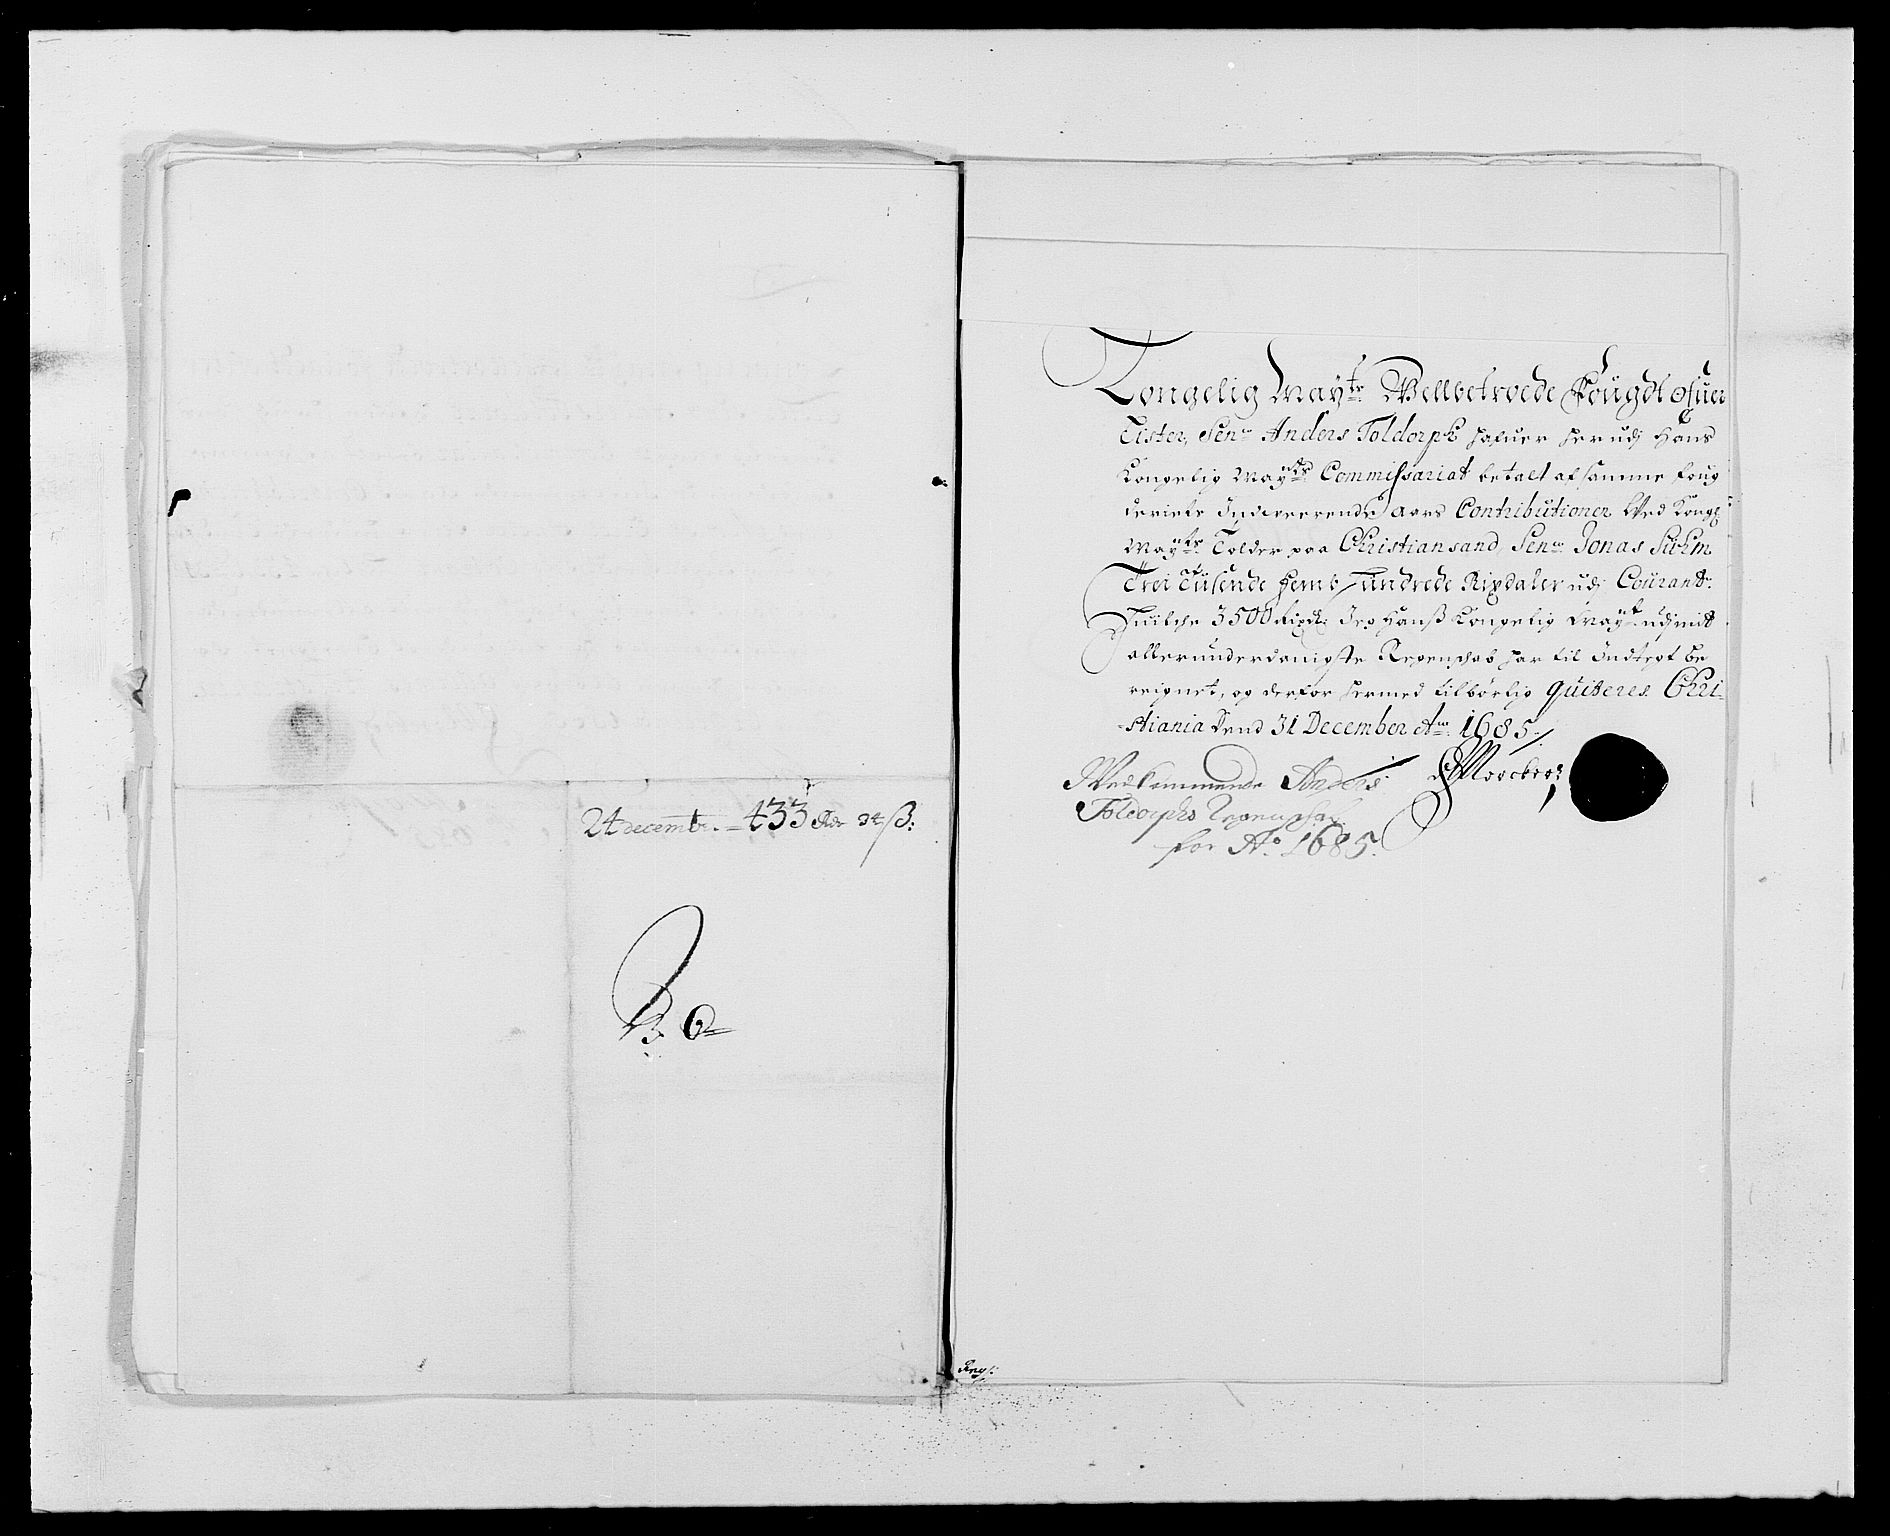 24 decembr. – 433 Rdr 34 ß:
N. 6
Kongelig Mayts. Wellbetroede Fougdt ofuer
Lister, Senr. Anders Toldorph hafuer her udj Hans
Kongelig Mayts. Commissariat betalt af samme foug
deriets Indewerende Aars Contributioner Ved Kongl:
Mayts. Tolder paa Christiansand, Senr. Jonas Suhm
Trei Tusende Femb hundrede Rixdaler udj Courant.
Huilche 3500 Rixdr. Jeg Hanß Kongelig Mayt. udj mit
allerunderdanigste Regenschab har til Indtegt be
reignet, og derfor hermed tilbørlig quiteres. Chri-
stiania Dend 31 December Ao. 1685.
Vedkommende Anders
Toldorphs Regenschab
for Ao. 1685.